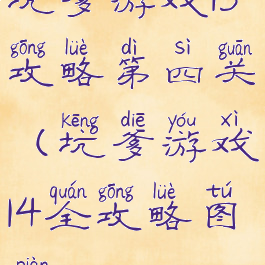 坑爹游戏15
gōng lüè dì sì guān
攻略第四关
kēng diē yóu xì
(坑爹游戏
quán gōng lüè tú
14全攻略图
piàn